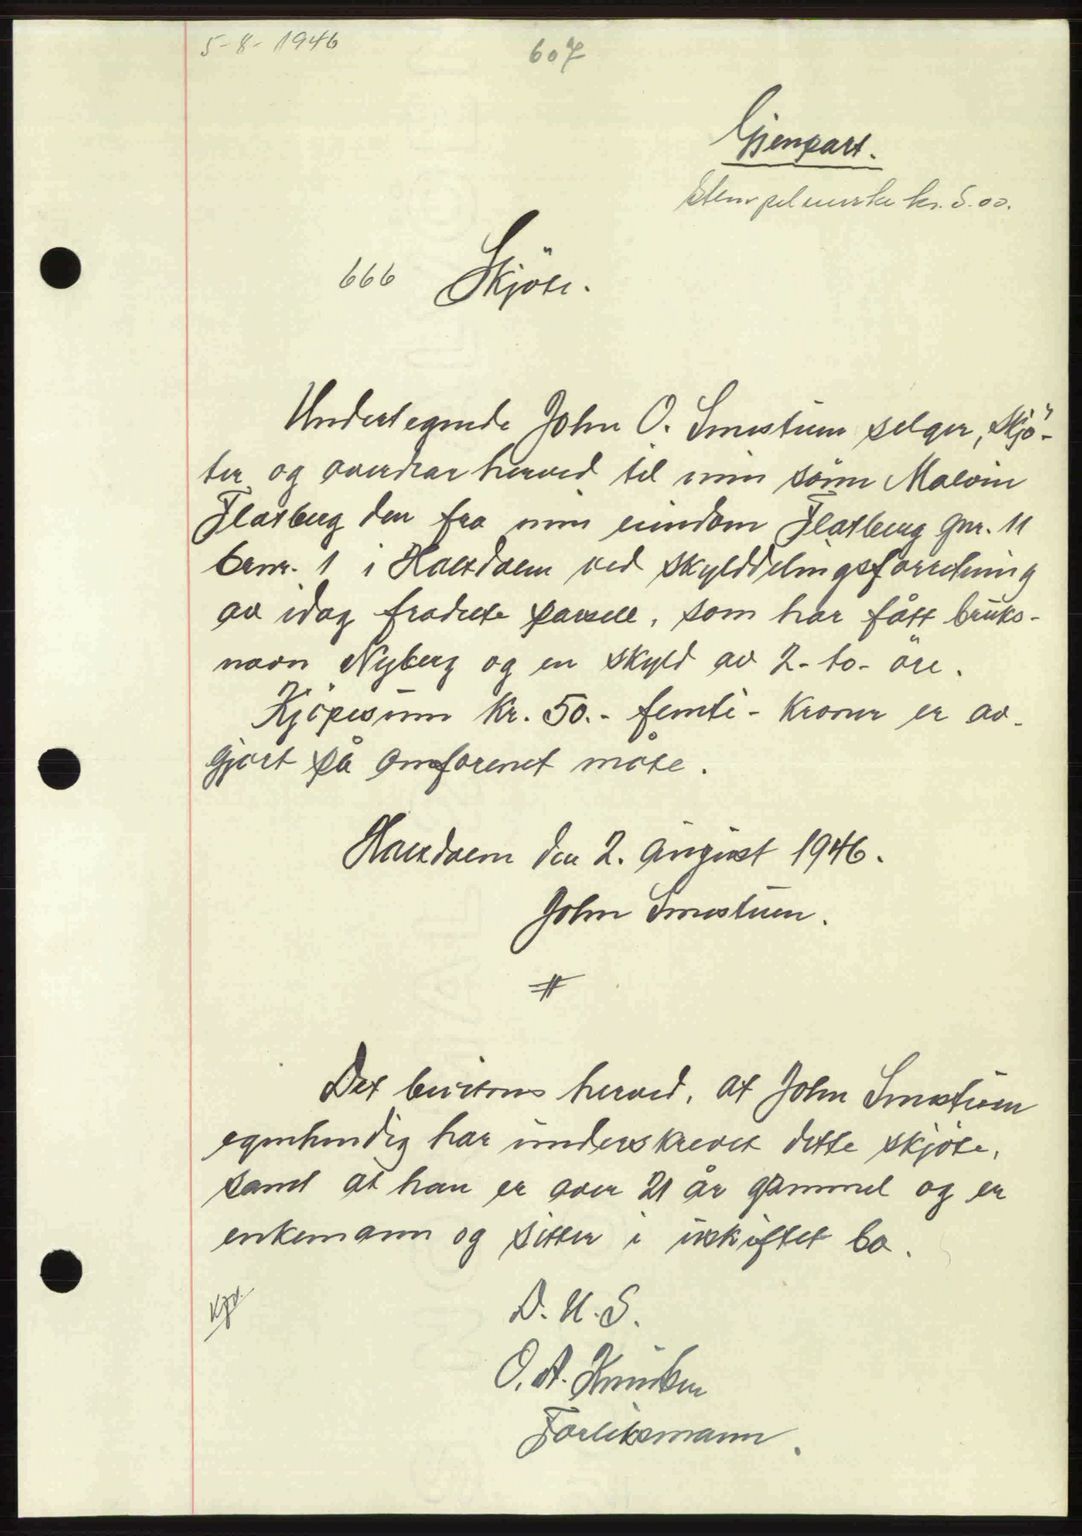 5-8-1946
607
Gjenpart.
Stempelmerke kr. 5.00.
666 Skjöte.
Undertegnede John O. Smestuen selger, skjö-
ter og overdrar herved til min sönn Malvin
Flatberg den fra min eiendom Flatberg gnr. 11
brnr. 1 i Haltdalen ved skylddelingsforretning
av idag fradelte parsell, som har fått bruks-
navn Nyberg og en skyld av 2- to- öre.
Kjöpesum kr. 50.- femti- kroner er av-
gjort på omforenet måte.
Haltdalen den 2. august 1946.
John Smestuen.
#
Det bevitnes herved, at John Smestuen
egenhendig har underskrevet dette skjöte,
samt at han er over 21 år gammel og er
enkemann og sitter i uskiftet bo.
D. U. S.
O. A.
Forliksmann.